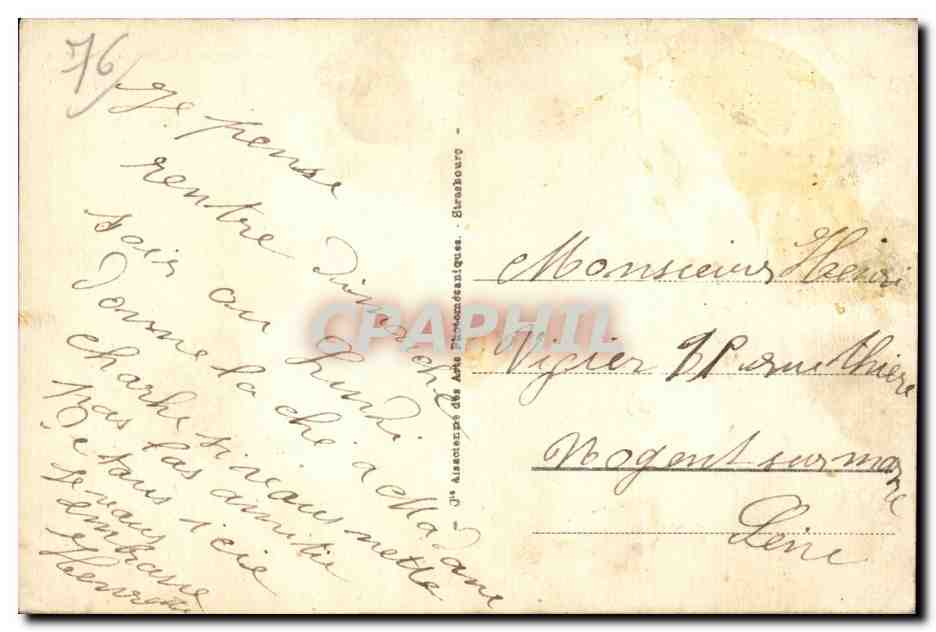 76
Je pense
rentre dimanche
soir ou lundi
donne la clé a Madame
charle si vous nette
pas las amitie
De tous ici
Je vous
embrasse
Henri
Jté Alsacienne des Arts Photomécaniques. - Strasbourg -
CPAPHIL
Monsieur Henri
Vigier rue thiere
Nogent sur marne
Seine